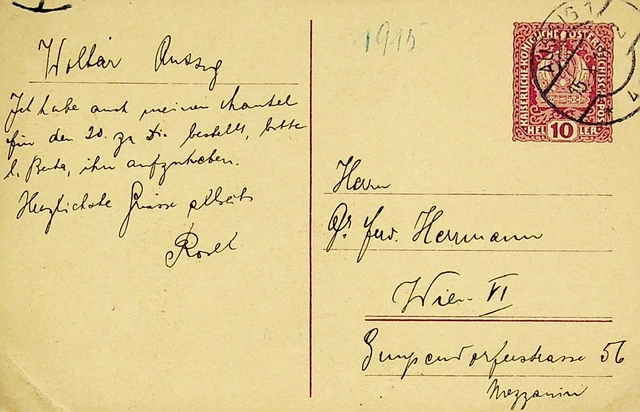 1915
Ich habe auch meinen Mantel
für den 20. zu Di. bestellt, bitte
l. Berta, ihn aufzuheben.
Herzlichste Grüsse allseits
KAISERLICHE KÖNIGLICHE ÖSTERREICHISCHE POST
HELLER 10
Herrn
Ferd. Herrmann
Wien VI
Gumpendorferstrasse 56
Mezzanin